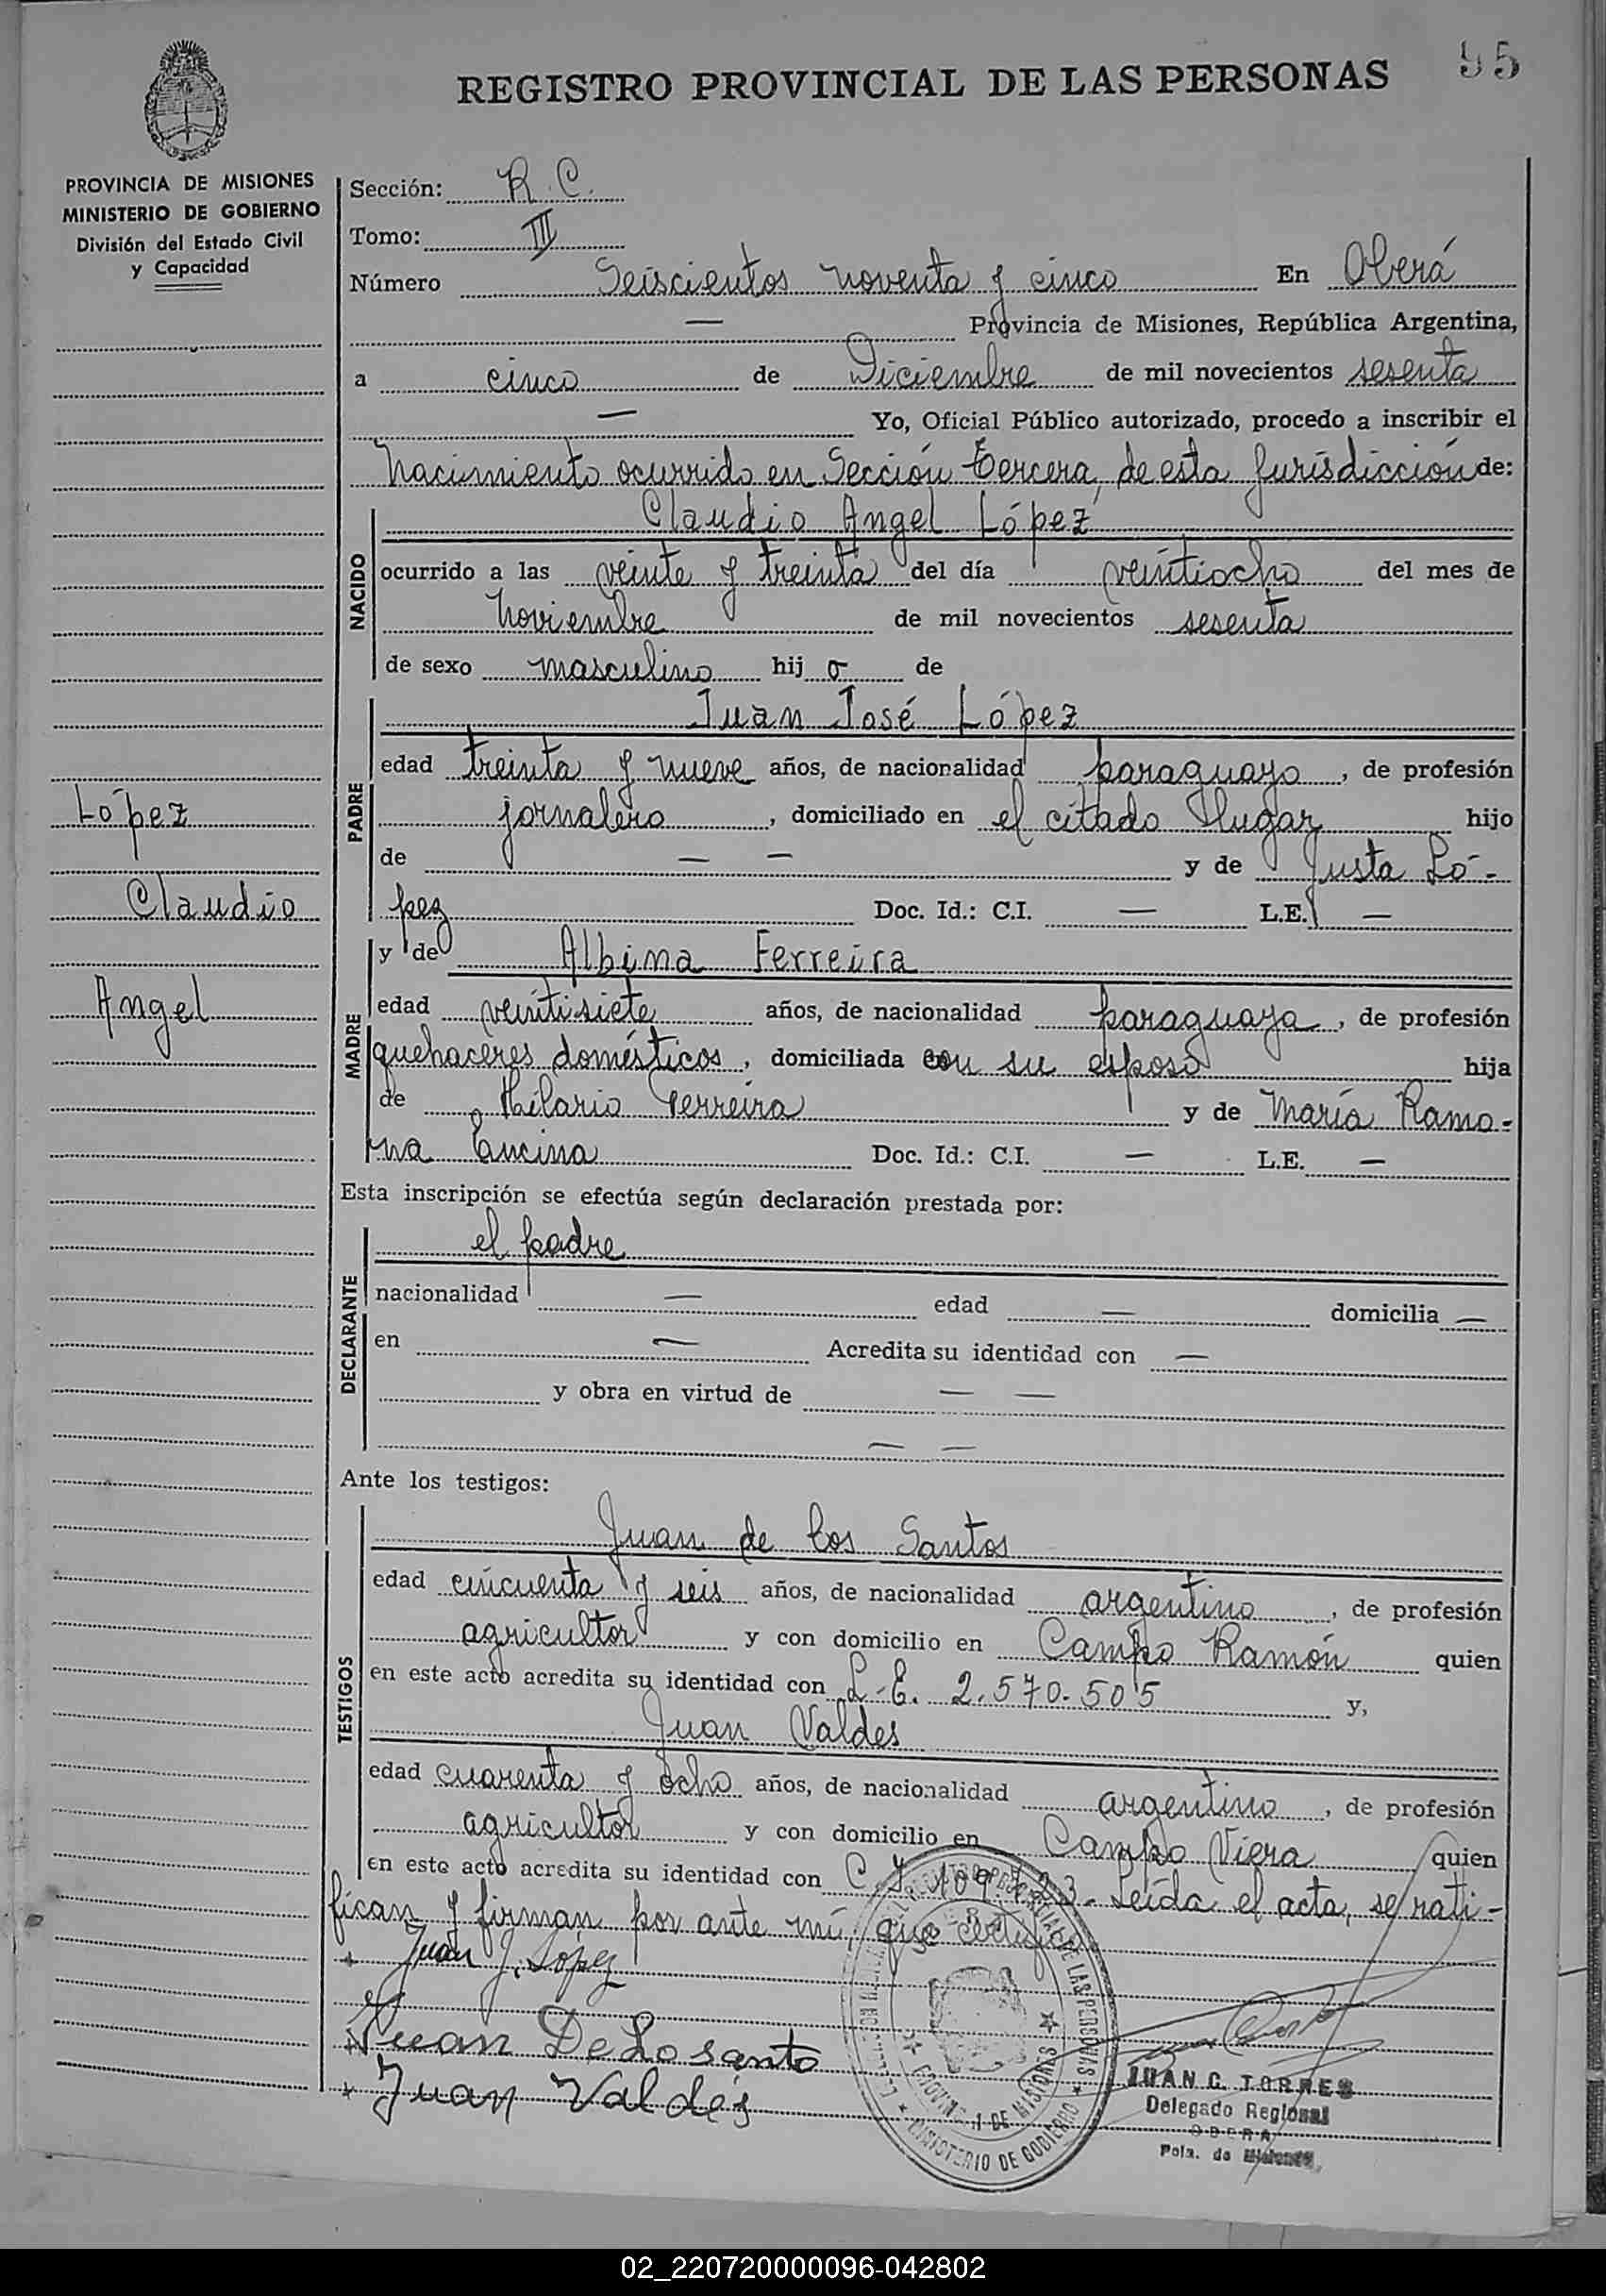 95
REGISTRO PROVINCIAL DE LAS PERSONAS
PROVINCIA DE MISIONES
MINISTERIO DE GOBIERNO
División del Estado Civil
y Capacidad
Sección: R. C.
Tomo: III
Número Seiscientos noventa y cinco En Oberá
— Provincia de Misiones, República Argentina,
a cinco de Diciembre de mil novecientos sesenta
— Yo, Oficial Público autorizado, procedo a inscribir el
Nacimiento ocurrido en Sección Tercera, de esta Jurisdicción de:
NACIDO
Claudio Angel López
ocurrido a las veinte y treinta del día veintiocho del mes de
Noviembre de mil novecientos sesenta
de sexo masculino hij o de
PADRE
Juan José López
edad treinta y nueve años, de nacionalidad paraguayo, de profesión
jornalero, domiciliado en el citado lugar hijo
de — — y de Justa Ló-
pez Doc. Id.: C.I. — L.E. —
López
Claudio
Angel
MADRE
y de Albina Ferreira
edad veintisiete años, de nacionalidad paraguaya, de profesión
quehaceres domésticos, domiciliada con su esposo hija
de Hilario Ferreira y de María Ramo-
na Encina Doc. Id.: C.I. — L.E. —
Esta inscripción se efectúa según declaración prestada por:
DECLARANTE
el padre
nacionalidad — edad — domicilia —
en — Acredita su identidad con —
y obra en virtud de — —
— —
Ante los testigos:
TESTIGOS
Juan de los Santos
edad cincuenta y seis años, de nacionalidad argentino, de profesión
agricultor y con domicilio en Campo Ramón quien
en este acto acredita su identidad con L.E. 2.570.505 y,
Juan Valdes
edad cuarenta y ocho años, de nacionalidad argentino, de profesión
agricultor y con domicilio en Campo Viera quien
en este acto acredita su identidad con C.I. Leída el acta, se rati-
fican y firman por ante mí, que certifico
+ Juan J. López
+ Juan De Lo santo
+ Juan Valdés
REGISTRO PROVINCIAL DE LAS PERSONAS
PROVINCIA DE MISIONES
MINISTERIO DE GOBIERNO
JUAN C. TORRES
Delegado Regional
OBERA
Pcia. de Misiones
02_220720000096-042802